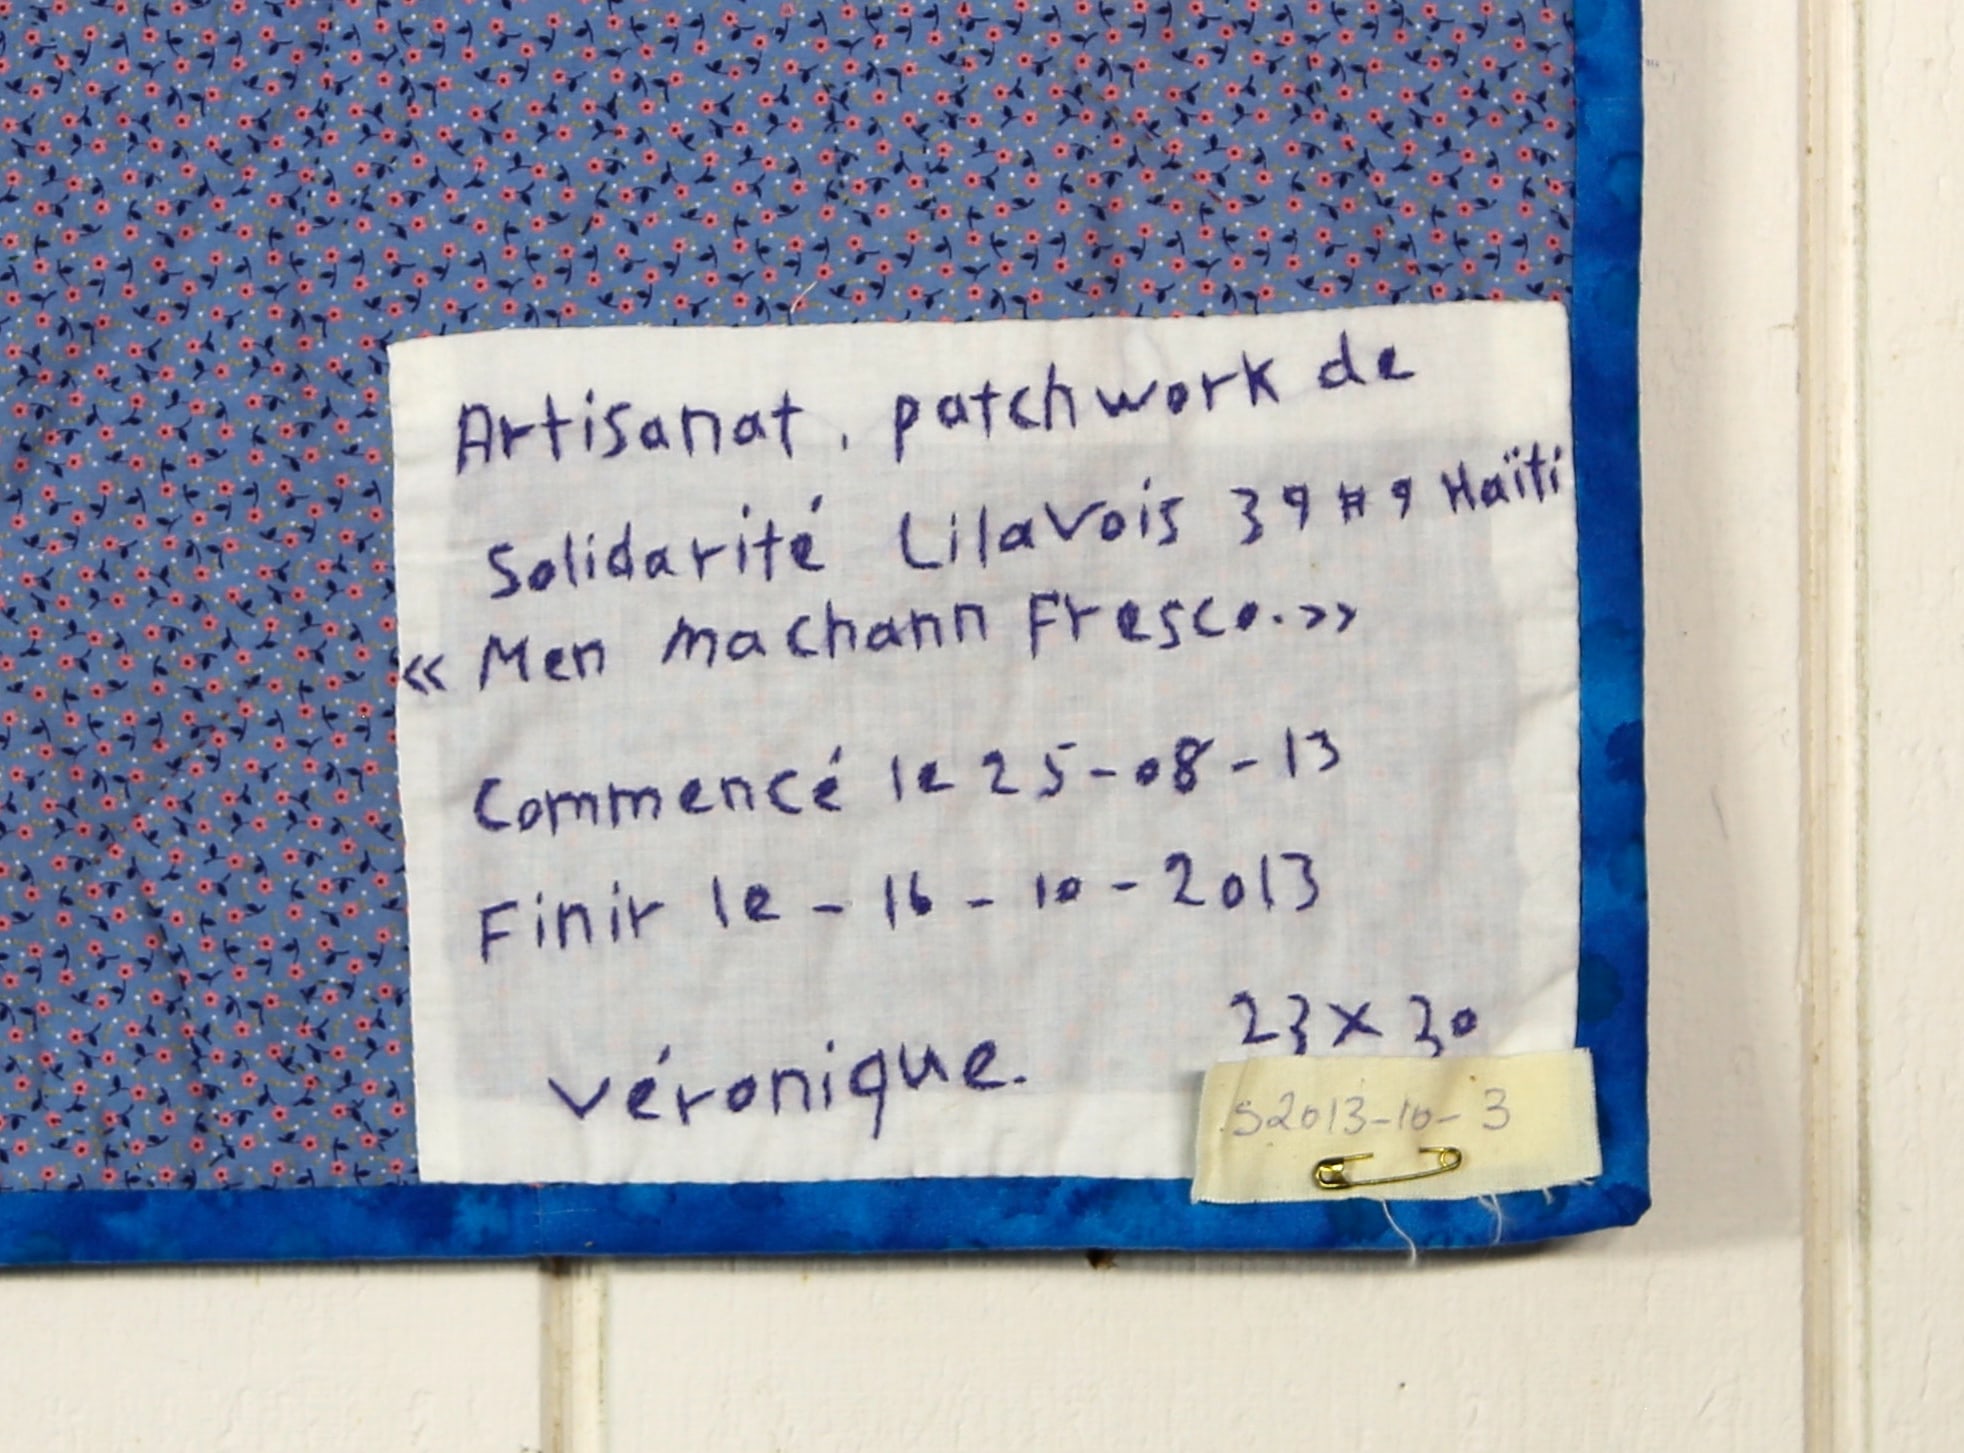 Artisanat. patchwork de
Solidarité Lilavois 39 # 9 Haïti
« Men machann Fresco. »
Commencé le 25-08-13
Finir le - 16 - 10 - 2013
Véronique.
23 x 30
S2013-10-3